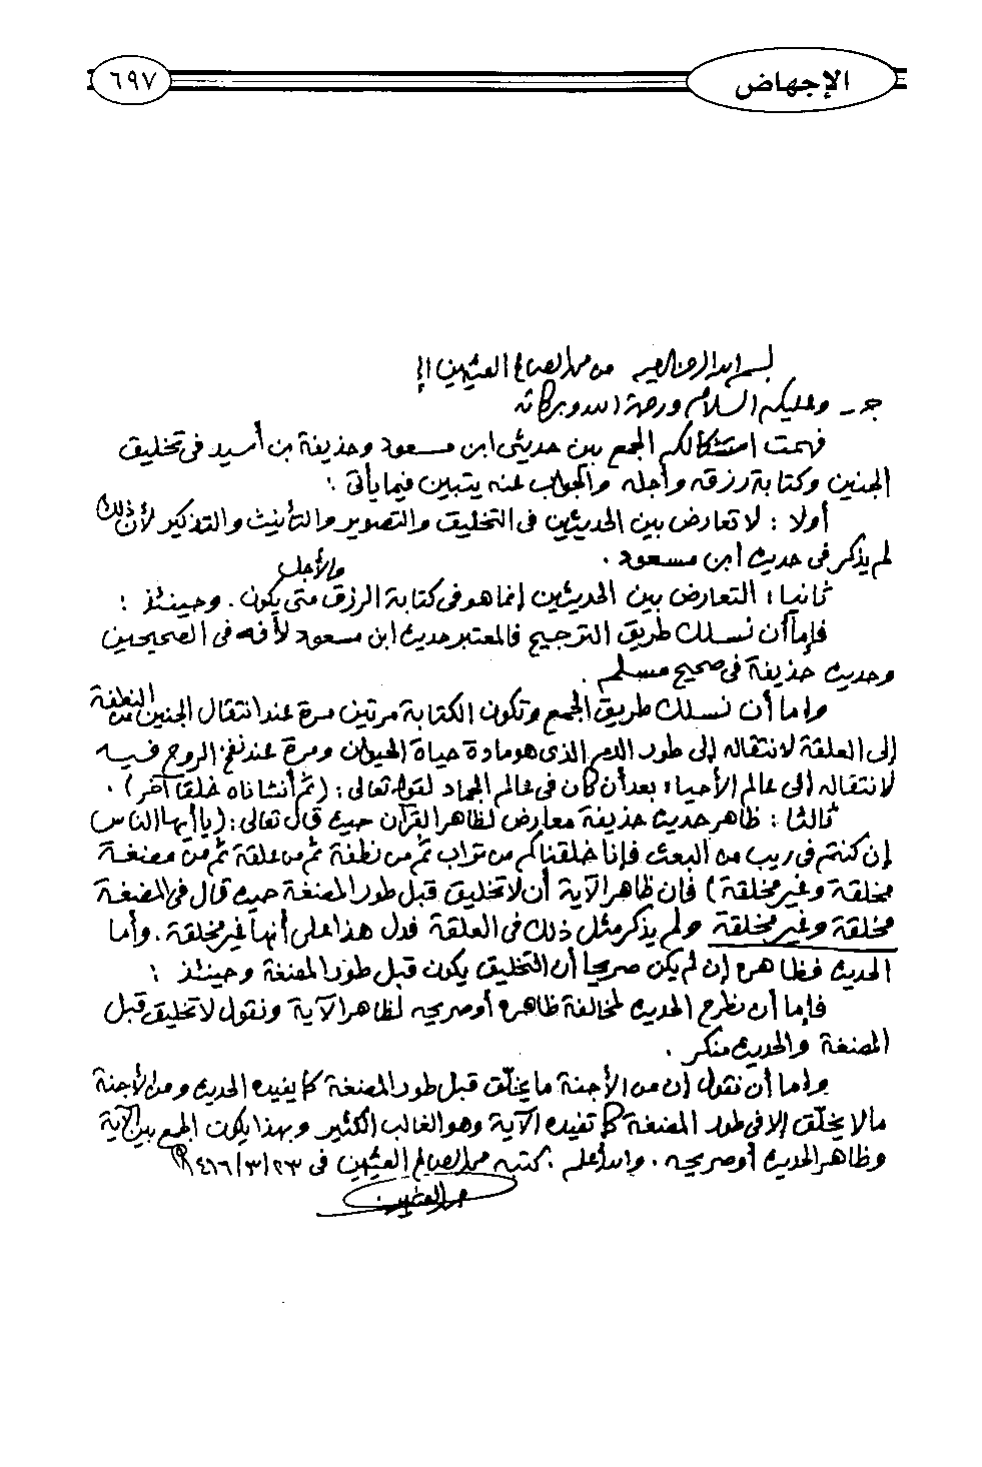 الإجهاض
٦٩٧
بسم الله الرحمن الرحيم من محمد الصالح العثيمين إلى
جـ ـ وعليكم السلام ورحمة الله وبركاته
فهمت استشكالكم الجمع بين حديثي ابن مسعود وحذيفة بن أسيد في تخليق
الجنين وكتابة رزقه وأجله والجواب عنه يتبين فيما يأتي :
أولا : لا تعارض بين الحديثين في التخليق والتصوير والتأنيث والتذكير لأن ذلك
لم يذكر في حديث ابن مسعود .
ثانيا : التعارض بين الحديثين إنما هو في كتابة الرزق والأجل متى يكون . وحينئذ :
فإما أن نسلك طريق الترجيح فالمعتبر حديث ابن مسعود لأنه في الصحيحين
وحديث حذيفة في صحيح مسلم .
وإما أن نسلك طريق الجمع وتكون الكتابة مرتين مرة عند انتقال الجنين من النطفة
إلى العلقة لانتقاله إلى طور الدم الذي هو مادة حياة الحيوان ومرة عند نفخ الروح فيه
لانتقاله إلى عالم الأحياء بعد أن كان في عالم الجماد لقوله تعالى : (ثم أنشأناه خلقا آخر) .
ثالثا : ظاهر حديث حذيفة معارض لظاهر القرآن حيث قال تعالى : (يا أيها الناس
إن كنتم في ريب من البعث فإنا خلقناكم من تراب ثم من نطفة ثم من علقة ثم من مضغة
مخلقة وغير مخلقة) فإن ظاهر الآية أن لا تخليق قبل طور المضغة حيث قال في المضغة
مخلقة وغير مخلقة ولم يذكر مثل ذلك في العلقة فدل هذا على أنها غير مخلقة . وأما
الحديث فظاهره إن لم يكن صريحا أن التخليق يكون قبل طور المضغة وحينئذ :
فإما أن نطرح الحديث لمخالفة ظاهره أو صريحه لظاهر الآية ونقول لا تخليق قبل
المضغة والحديث منكر .
وإما أن نقول إن من الأجنة ما يخلّق قبل طور المضغة كما يفيده الحديث ومن الأجنة
ما لا يخلّق إلا في طور المضغة كما تفيده الآية وهو الغالب الكثير وبهذا يكون الجمع بين الآية
وظاهر الحديث أو صريحه . والله أعلم . كتبه محمد الصالح العثيمين في ٢٣/٣/١٤١٦هـ
محمد العثيمين